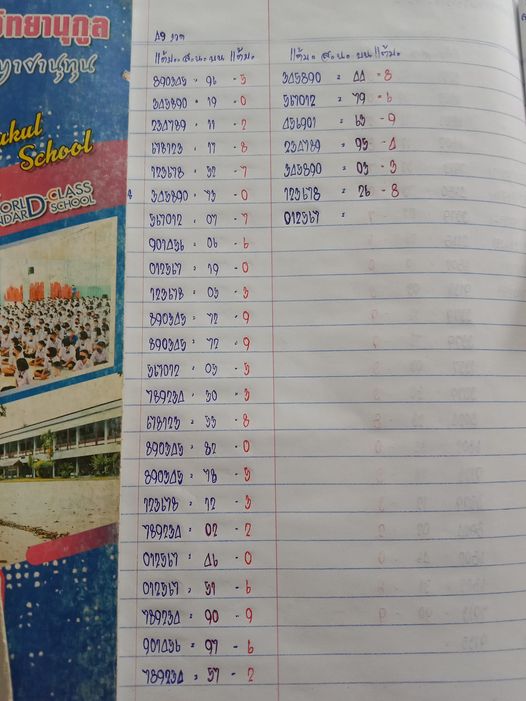 วิทยานุกูล
akul
School
WORLD CLASS
STANDARD SCHOOL
แต้ม. ส.น. บน แต้ม.
890345 = 96 - 5
345890 = 19 - 0
234789 = 11 - 2
678123 = 17 - 8
123678 = 52 - 7
345890 = 73 - 0
567012 = 07 - 7
901456 = 06 - 6
012567 = 19 - 0
123678 = 03 - 3
890345 = 72 - 9
890345 = 72 - 9
567012 = 05 - 5
789234 = 30 - 3
678123 = 53 - 8
890345 = 82 - 0
890345 = 78 - 5
123678 = 12 - 3
789234 = 02 - 2
012567 = 46 - 0
012567 = 51 - 6
789234 = 90 - 9
901456 = 97 - 6
789234 = 57 - 2
แต้ม. ส.น. บน แต้ม.
345890 = 44 - 8
567012 = 79 - 6
456901 = 63 - 9
234789 = 95 - 4
345890 = 03 - 3
123678 = 26 - 8
012567 =